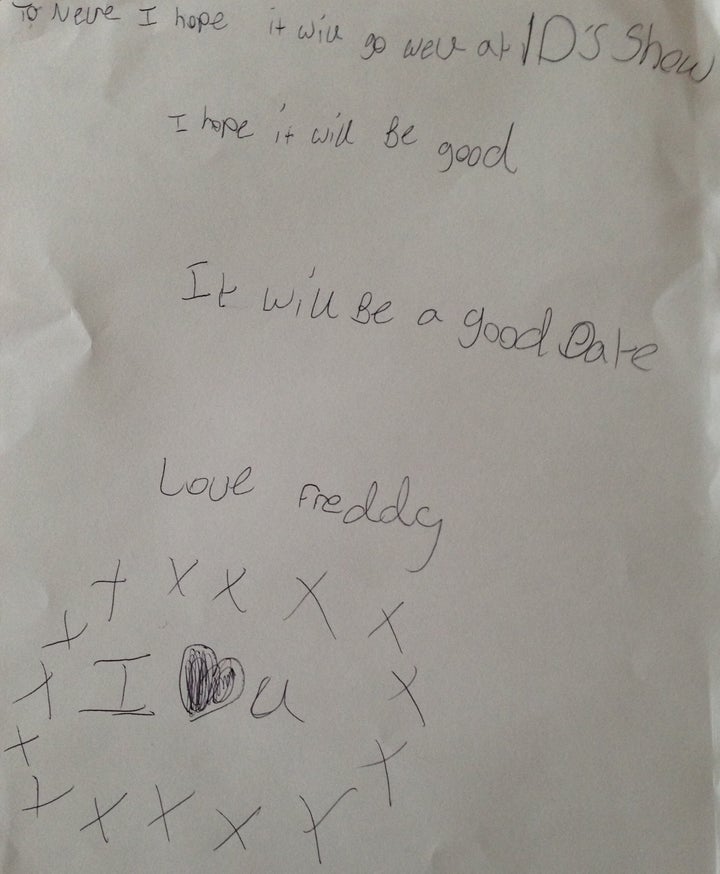 To Neve I hope it will go well at 1D'S Show
I hope it will Be good
It will Be a good Date
Love Freddy
x x x x x
x x
x I ♥ u x
x x
x x x x x